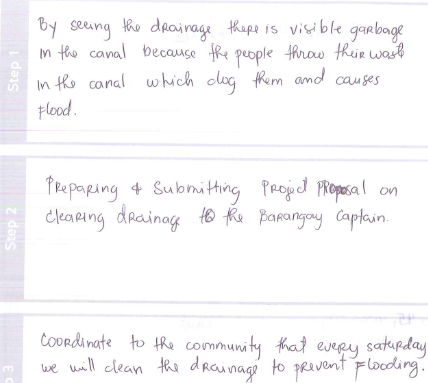 Step 1
By seeing the drainage there is visible garbage
in the canal because the people throw their waste
in the canal which clog them and causes
flood.
Step 2
Preparing & Submitting Project Proposal on
clearing drainage to the Barangay Captain.
3
Coordinate to the community that every saturday
we will clean the drainage to prevent Flooding.